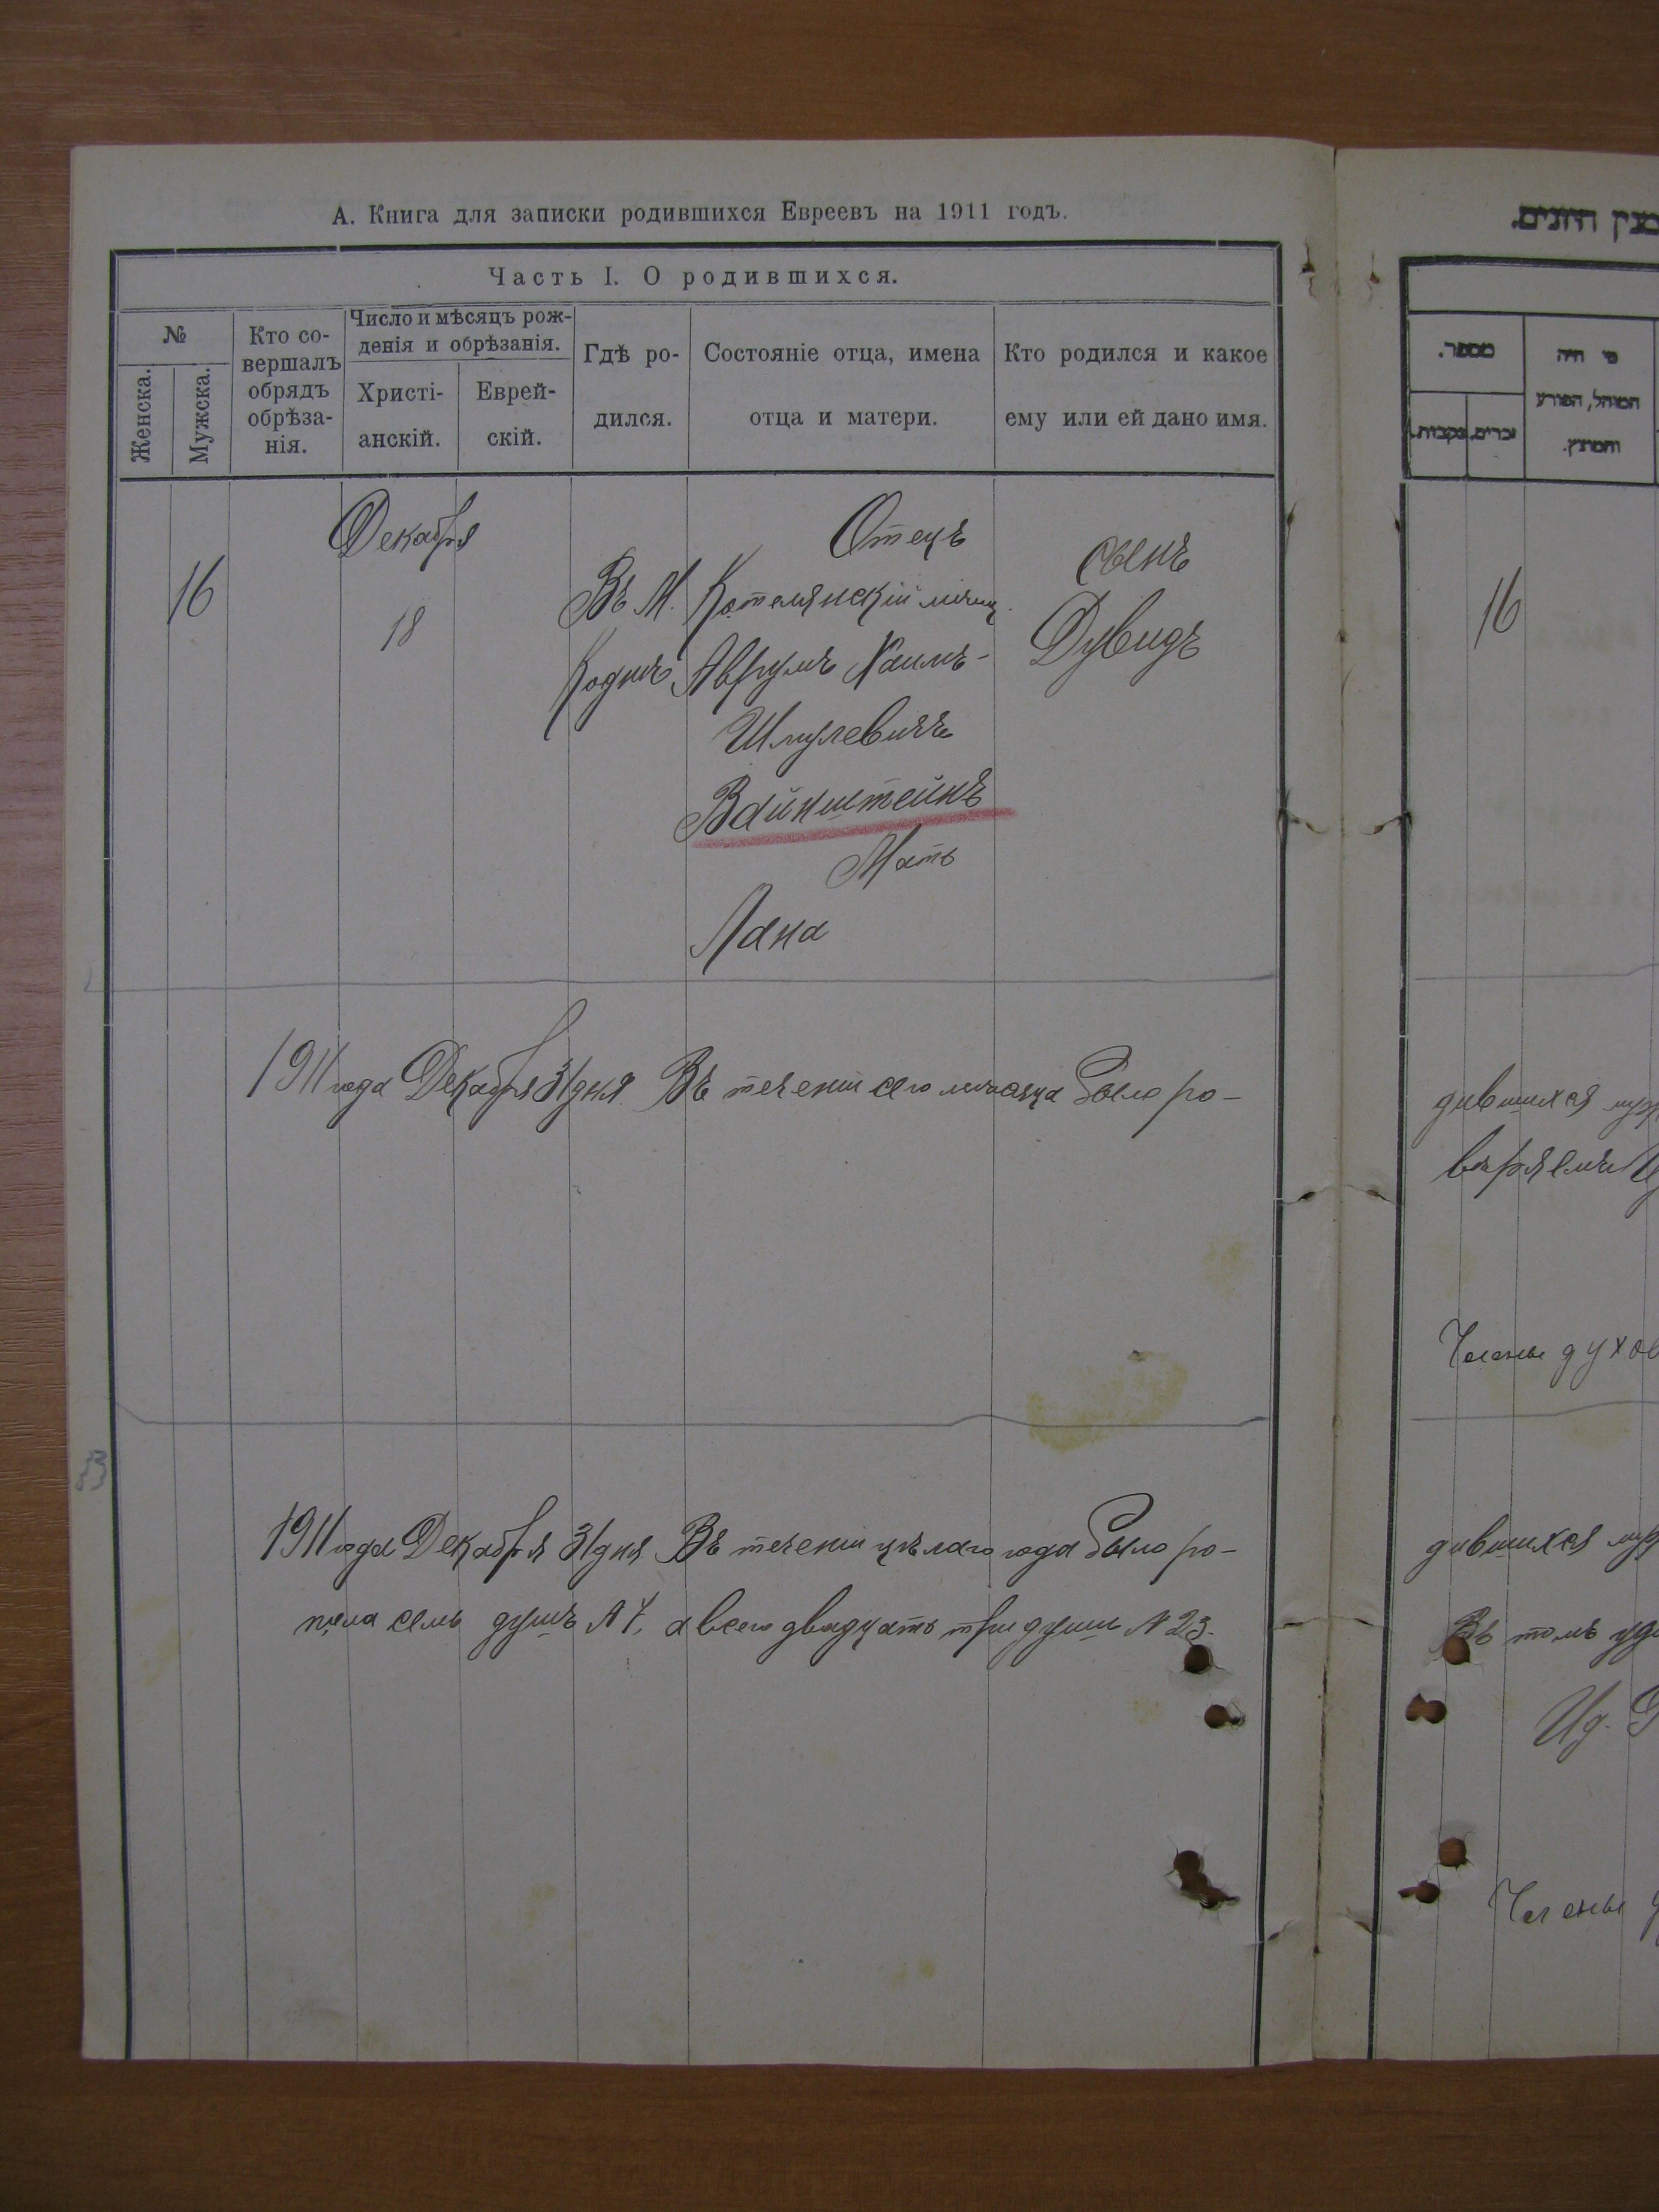 А. Книга для записки родившихся Евреевъ на 1911 годъ.
Часть I. О родившихся.
№
Женска.
Мужска.
Кто со-
вершалъ
обрядъ
обрѣза-
нія.
Число и мѣсяцъ рож-
денія и обрѣзанія.
Христі-
анскій.
Еврей-
скій.
Гдѣ ро-
дился.
Состояніе отца, имена
отца и матери.
Кто родился и какое
ему или ей дано имя.
16
Декабря
18
Въ М.
Кодня
Отецъ
Котелянскій мѣщ.
Аврумъ Хаимъ-
Шмулевичъ
Вайнштейнъ
Мать
Лана
сынъ
Дувидъ
1911 года Декабря 31 дня Въ теченіи сего мѣсяца было ро-
1911 года Декабря 31 дня Въ теченіи цѣлаго года было ро-
пола семь душъ № 7, а всего двадцать три душъ № 23.
מספר.
זכרים.
נקבות.
מי היה
המוהל, הפורע
והמוצץ.
16
дившихся
Члены духов
дившихся
Въ томъ
Члены